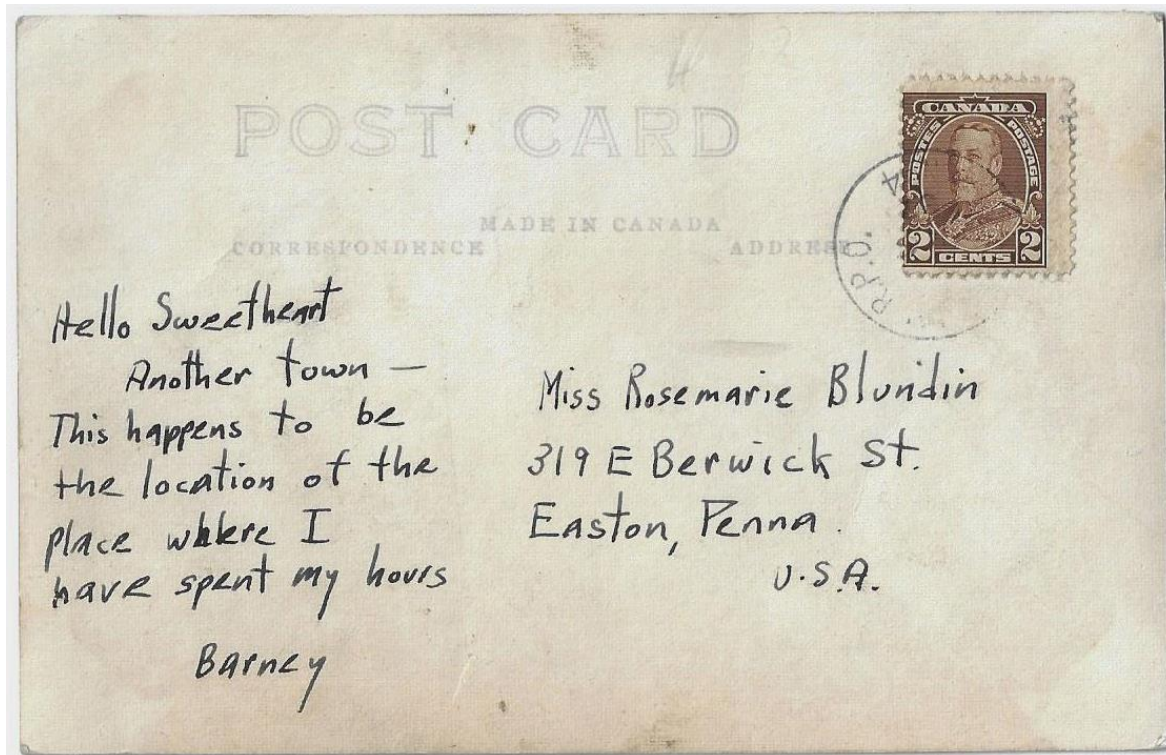 POST CARD
MADE IN CANADA
CORRESPONDENCE
ADDRESS
CANADA
POSTES
POSTAGE
2 CENTS 2
R.P.O.
4
Hello Sweetheart
Another town —
This happens to be
the location of the
place where I
have spent my hours
Barney
Miss Rosemarie Blundin
319 E Berwick St.
Easton, Penna.
U.S.A.